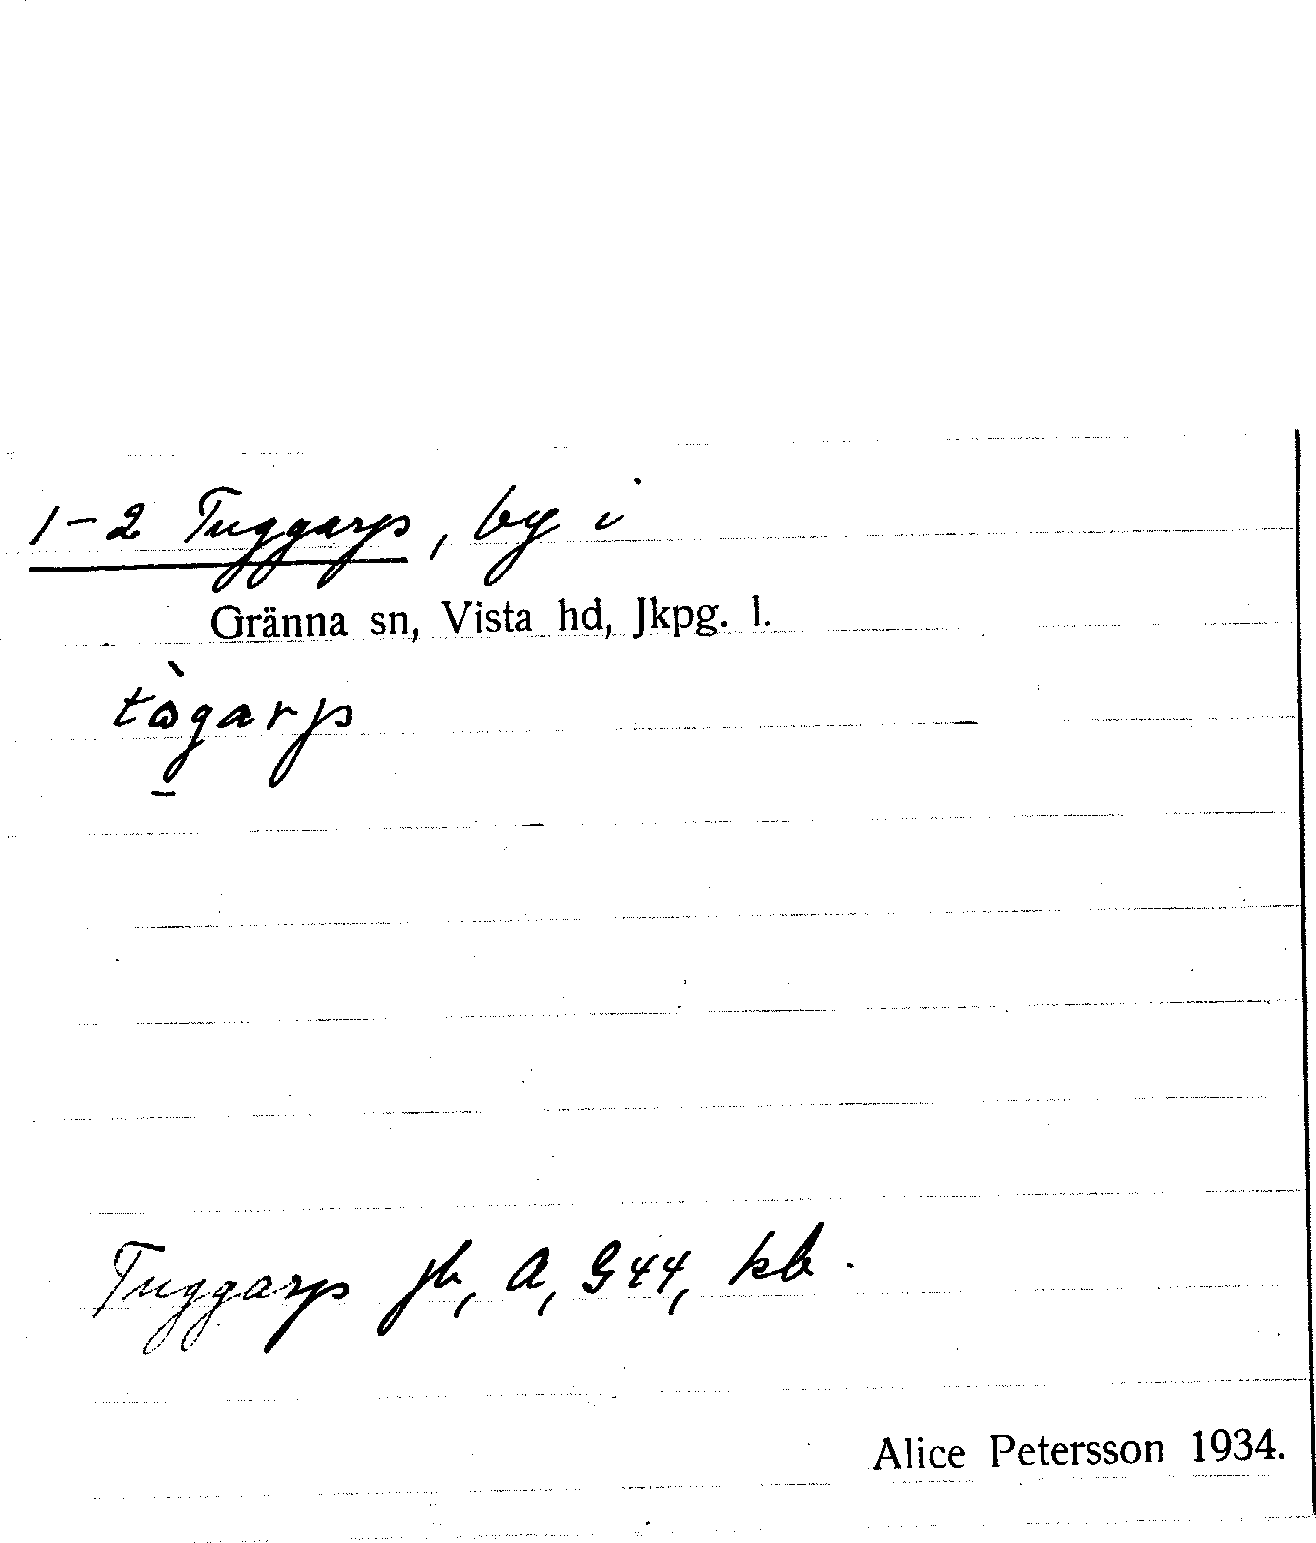 1-2 Tuggarp, by i
Gränna sn, Vista hd, Jkpg. l.
tògarp
Tuggarp jb, A, G44, kb.
Alice Petersson 1934.